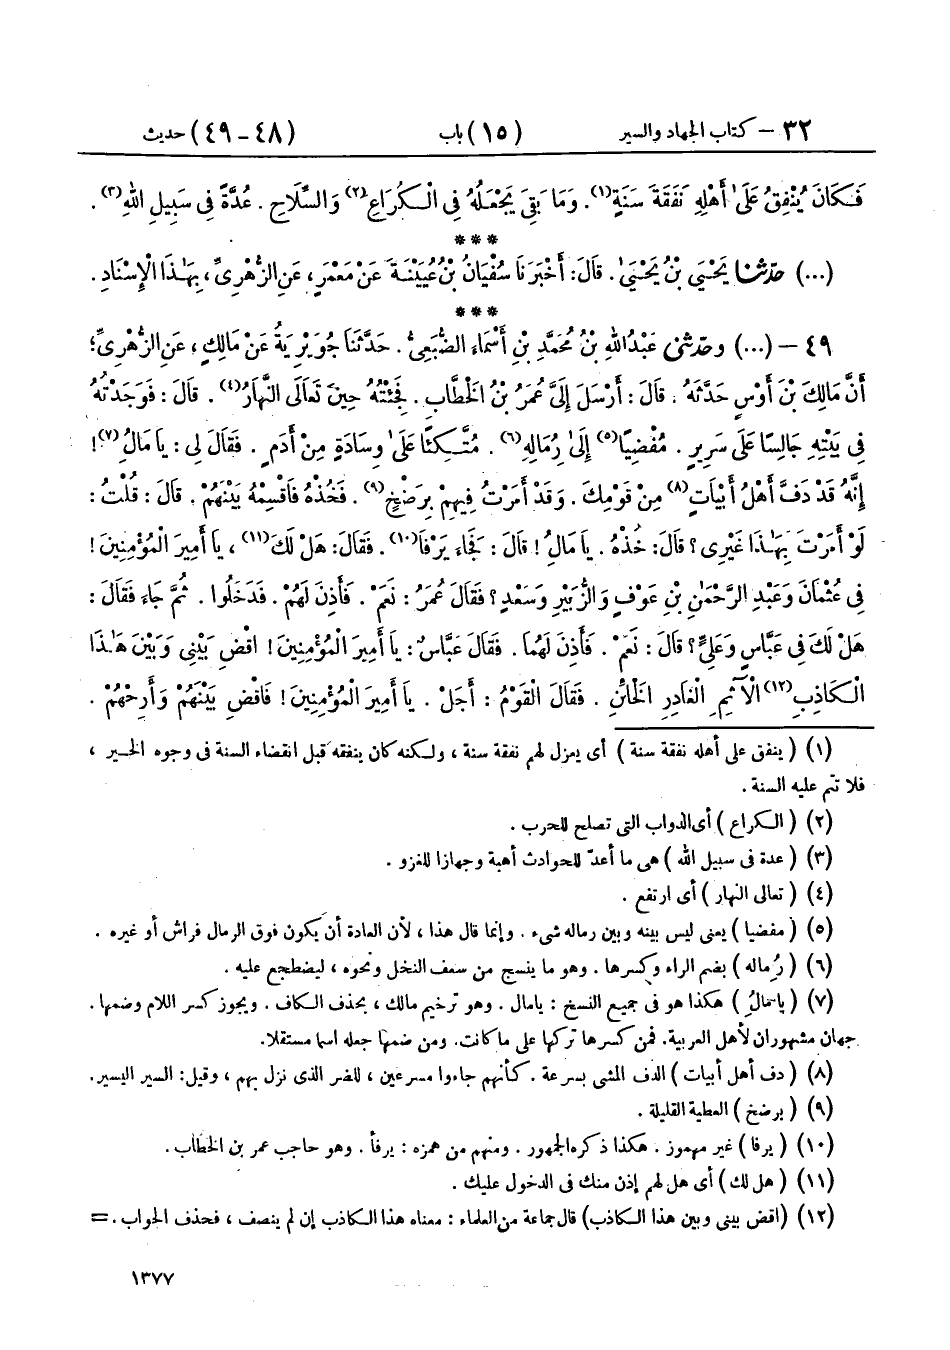 ٣٢ – كتاب الجهاد والسير (١٥) باب (٤٨-٤٩) حديث
فَكَانَ يُنْفِقُ عَلَىٰ أَهْلِهِ نَفَقَةَ سَنَةٍ(١). وَمَا بَقِيَ يَجْعَلُهُ فِي الْكُرَاعِ(٢) وَالسِّلَاحِ. عُدَّةً فِي سَبِيلِ اللهِ(٣).
***
(...) حدّثنا يَحْيَى بْنُ يَحْيَىٰ. قَالَ: أَخْبَرَنَا سُفْيَانُ بْنُ عُيَيْنَةَ عَنْ مَعْمَرٍ، عَنِ الزُّهْرِيِّ، بِهَٰذَا الْإِسْنَادِ.
***
٤٩ – (...) وحدّثني عَبْدُ اللهِ بْنُ مُحَمَّدِ بْنِ أَسْمَاءَ الضُّبَعِيُّ. حَدَّثَنَا جُوَيْرِيَةُ عَنْ مَالِكٍ، عَنِ الزُّهْرِيِّ؛
أَنَّ مَالِكَ بْنَ أَوْسٍ حَدَّثَهُ. قَالَ: أَرْسَلَ إِلَيَّ عُمَرُ بْنُ الْخَطَّابِ. فَجِئْتُهُ حِينَ تَعَالَى النَّهَارُ(٤). قَالَ: فَوَجَدْتُهُ
فِي بَيْتِهِ جَالِسًا عَلَى سَرِيرٍ. مُفْضِيًا(٥) إِلَىٰ رُمَالِهِ(٦). مُتَّكِئًا عَلَىٰ وِسَادَةٍ مِنْ أَدَمٍ. فَقَالَ لِي: يَا مَالُ(٧)!
إِنَّهُ قَدْ دَفَّ أَهْلُ أَبْيَاتٍ(٨) مِنْ قَوْمِكَ. وَقَدْ أَمَرْتُ فِيهِمْ بِرَضْخٍ(٩). فَخُذْهُ فَاقْسِمْهُ بَيْنَهُمْ. قَالَ: قُلْتُ:
لَوْ أَمَرْتَ بِهَٰذَا غَيْرِي؟ قَالَ: خُذْهُ. يَا مَالُ! قَالَ: فَجَاءَ يَرْفَا(١٠). فَقَالَ: هَلْ لَكَ(١١)، يَا أَمِيرَ الْمُؤْمِنِينَ!
فِي عُثْمَانَ وَعَبْدِ الرَّحْمَٰنِ بْنِ عَوْفٍ وَالزُّبَيْرِ وَسَعْدٍ؟ فَقَالَ عُمَرُ: نَعَمْ. فَأَذِنَ لَهُمْ. فَدَخَلُوا. ثُمَّ جَاءَ فَقَالَ:
هَلْ لَكَ فِي عَبَّاسٍ وَعَلِيٍّ؟ قَالَ: نَعَمْ. فَأَذِنَ لَهُمَا. فَقَالَ عَبَّاسٌ: يَا أَمِيرَ الْمُؤْمِنِينَ! اقْضِ بَيْنِي وَبَيْنَ هَٰذَا
الْكَاذِبِ(١٢) الْآثِمِ الْغَادِرِ الْخَائِنِ. فَقَالَ الْقَوْمُ: أَجَلْ. يَا أَمِيرَ الْمُؤْمِنِينَ! فَاقْضِ بَيْنَهُمْ وَأَرِحْهُمْ.
(١) (ينفق على أهله نفقة سنة) أى يعزل لهم نفقة سنة، ولكنه كان ينفقه قبل انقضاء السنة فى وجوه الخير،
فلا تتم عليه السنة.
(٢) (الكراع) أى الدواب التى تصلح للحرب.
(٣) (عدة فى سبيل الله) هى ما أعدّ للحوادث أهبة وجهازا للغزو.
(٤) (تعالى النهار) أى ارتفع.
(٥) (مفضيا) يعنى ليس بينه وبين رماله شىء. وإنما قال هذا، لأن العادة أن يكون فوق الرمال فراش أو غيره.
(٦) (رُماله) بضم الراء وكسرها. وهو ما ينسج من سعف النخل ونحوه، ليضطجع عليه.
(٧) (يا مالُ) هكذا هو فى جميع النسخ: يا مال. وهو ترخيم مالك، بحذف الكاف. ويجوز كسر اللام وضمها.
وجهان مشهوران لأهل العربية. فمن كسرها تركها على ما كانت. ومن ضمها جعله اسما مستقلا.
(٨) (دف أهل أبيات) الدف المشى بسرعة. كأنهم جاءوا مسرعين، للضر الذى نزل بهم، وقيل: السير اليسير.
(٩) (برضخ) العطية القليلة.
(١٠) (يرفا) غير مهموز. هكذا ذكره الجمهور. ومنهم من همزه: يرفأ. وهو حاجب عمر بن الخطاب.
(١١) (هل لك) أى هل لهم إذن منك فى الدخول عليك.
(١٢) (اقض بينى وبين هذا الكاذب) قال جماعة من العلماء: معناه هذا الكاذب إن لم ينصف، فحذف الجواب. =
١٣٧٧